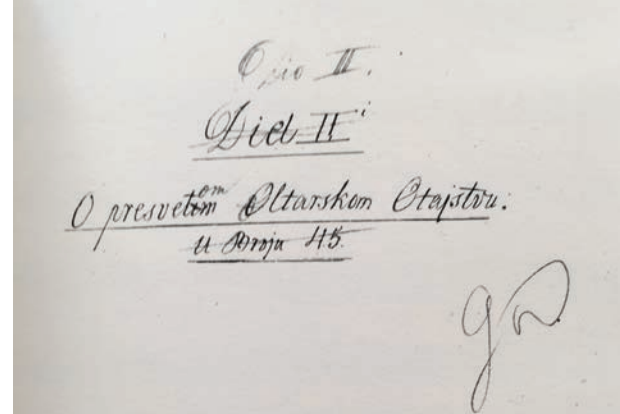 Dio II.
Diel IIi
O presvetom Oltarskom Otajstvu.
U Broju 45.